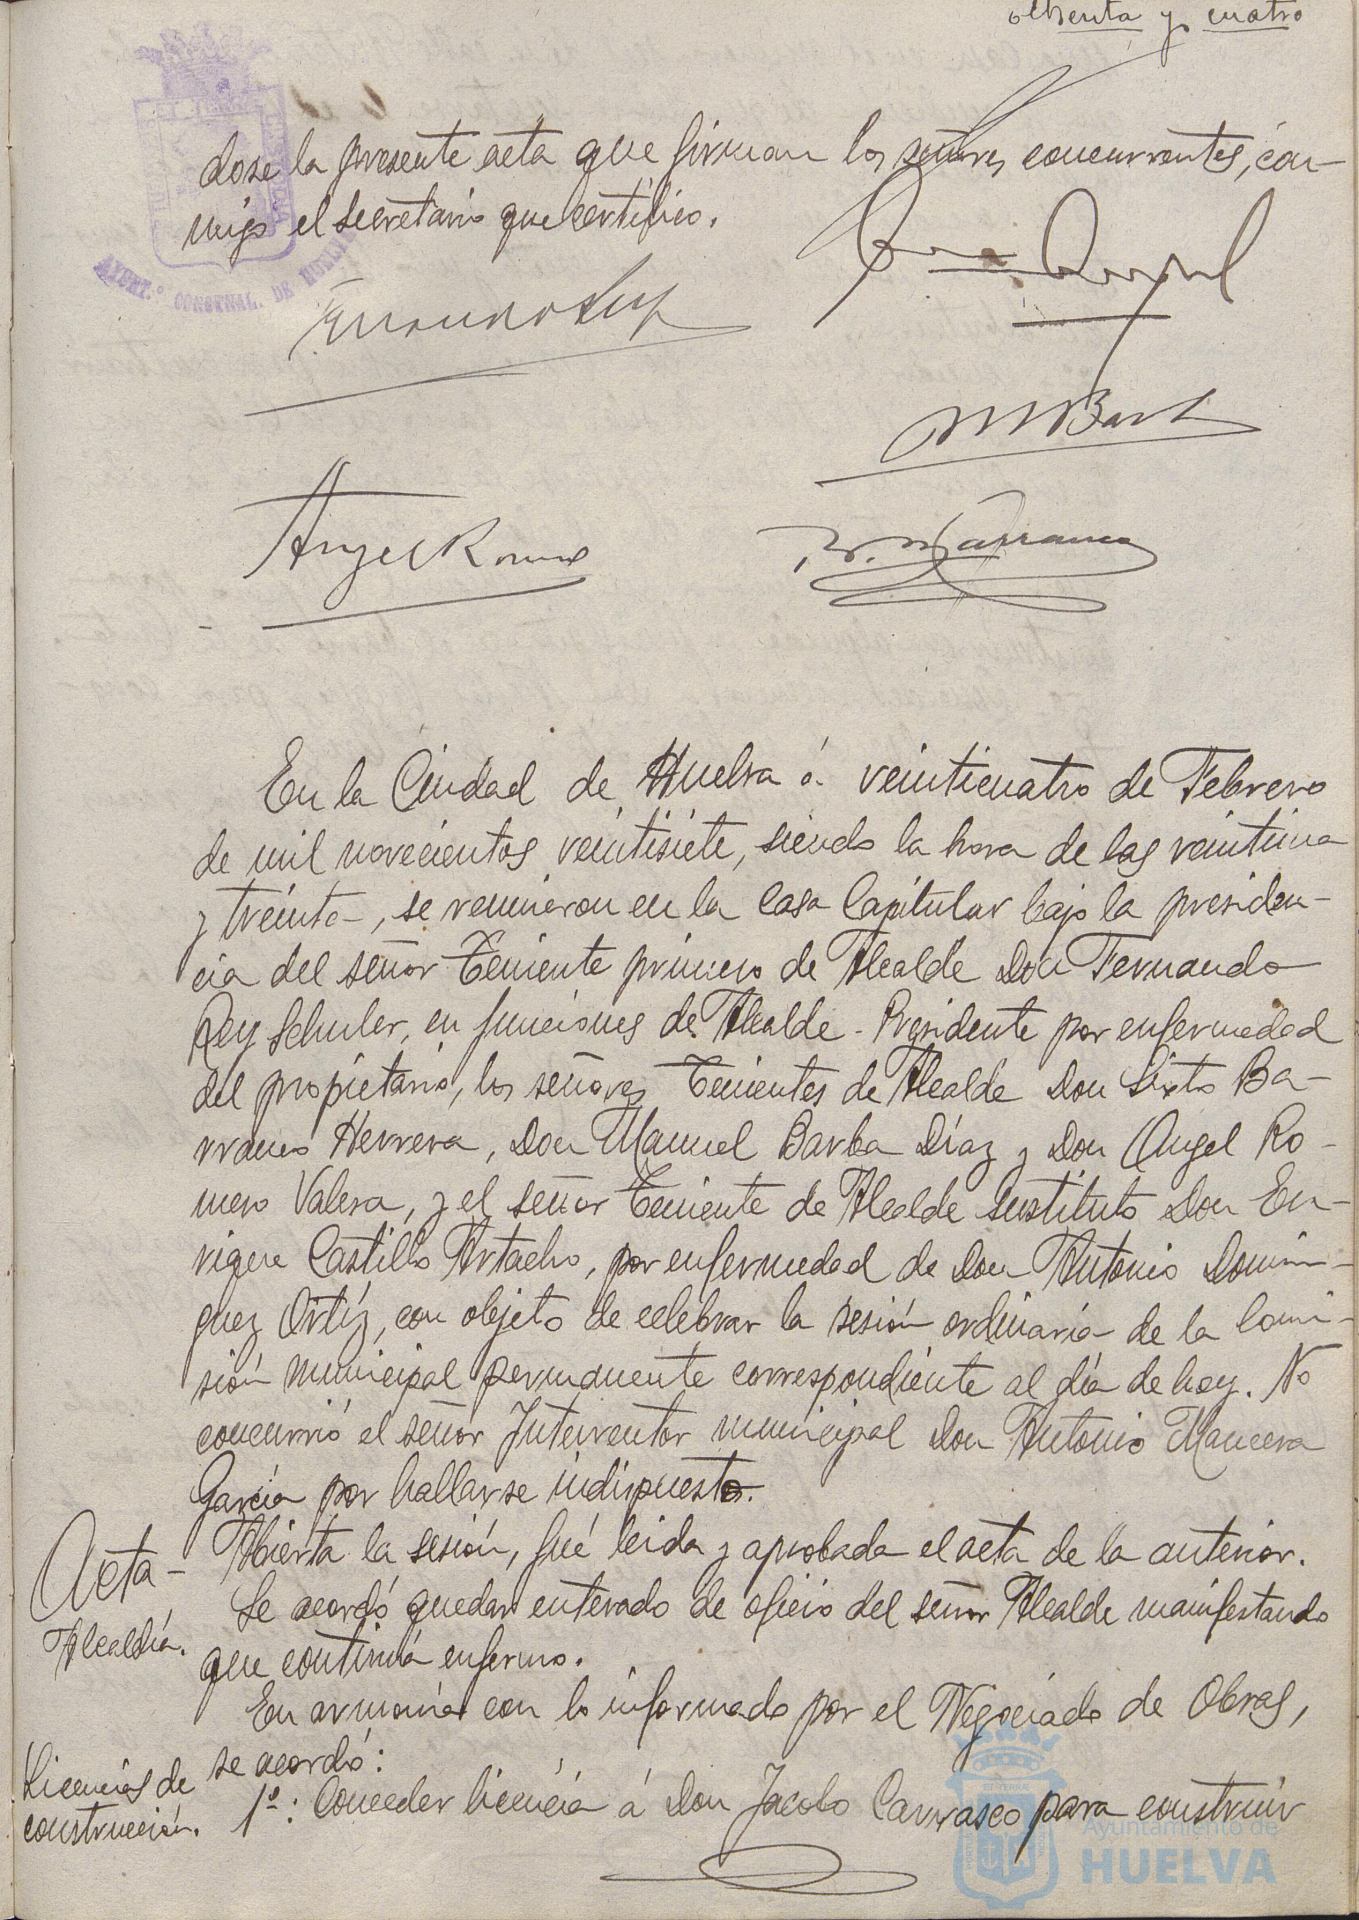 ochenta y cuatro
dose la presente acta que firman los señores concurrentes, con-
migo el secretario que certifico.
Fernando Rey
M Barba
Angel Romero
S. Barranco
En la Ciudad de Huelva á veinticuatro de Febrero
de mil novecientos veintisiete, siendo la hora de las veintiuna
y treinta, se reunieron en la Casa Capitular bajo la presiden-
cia del señor Teniente primero de Alcalde Don Fernando
Rey Schuler, en funciones de Alcalde-Presidente por enfermedad
del propietario, los señores Tenientes de Alcalde Don Sixto Ba-
rranco Herrera, Don Manuel Barba Díaz y Don Angel Ro-
mero Valera, y el señor Teniente de Alcalde sustituto Don En-
rique Castillo Artacho, por enfermedad de Don Antonio Domin-
guez Ortíz, con objeto de celebrar la sesión ordinaria de la Comi-
sión municipal permanente correspondiente al día de hoy. No
concurrió el señor Interventor municipal Don Antonio Mancera
García por hallarse indispuesto.
Acta- Abierta la sesión, fué leida y aprobada el acta de la anterior.
Alcaldía. Se acordó quedar enterado de oficio del señor Alcalde manifestando
que continúa enfermo.
En armonía con lo informado por el Negociado de Obras,
se acordó:
Licencias de
construcción. 1º: Conceder licencia á Don Jacobo Carrasco para construir
AYUNT.º CONSTNAL. DE HUELVA
Ayuntamiento de
HUELVA